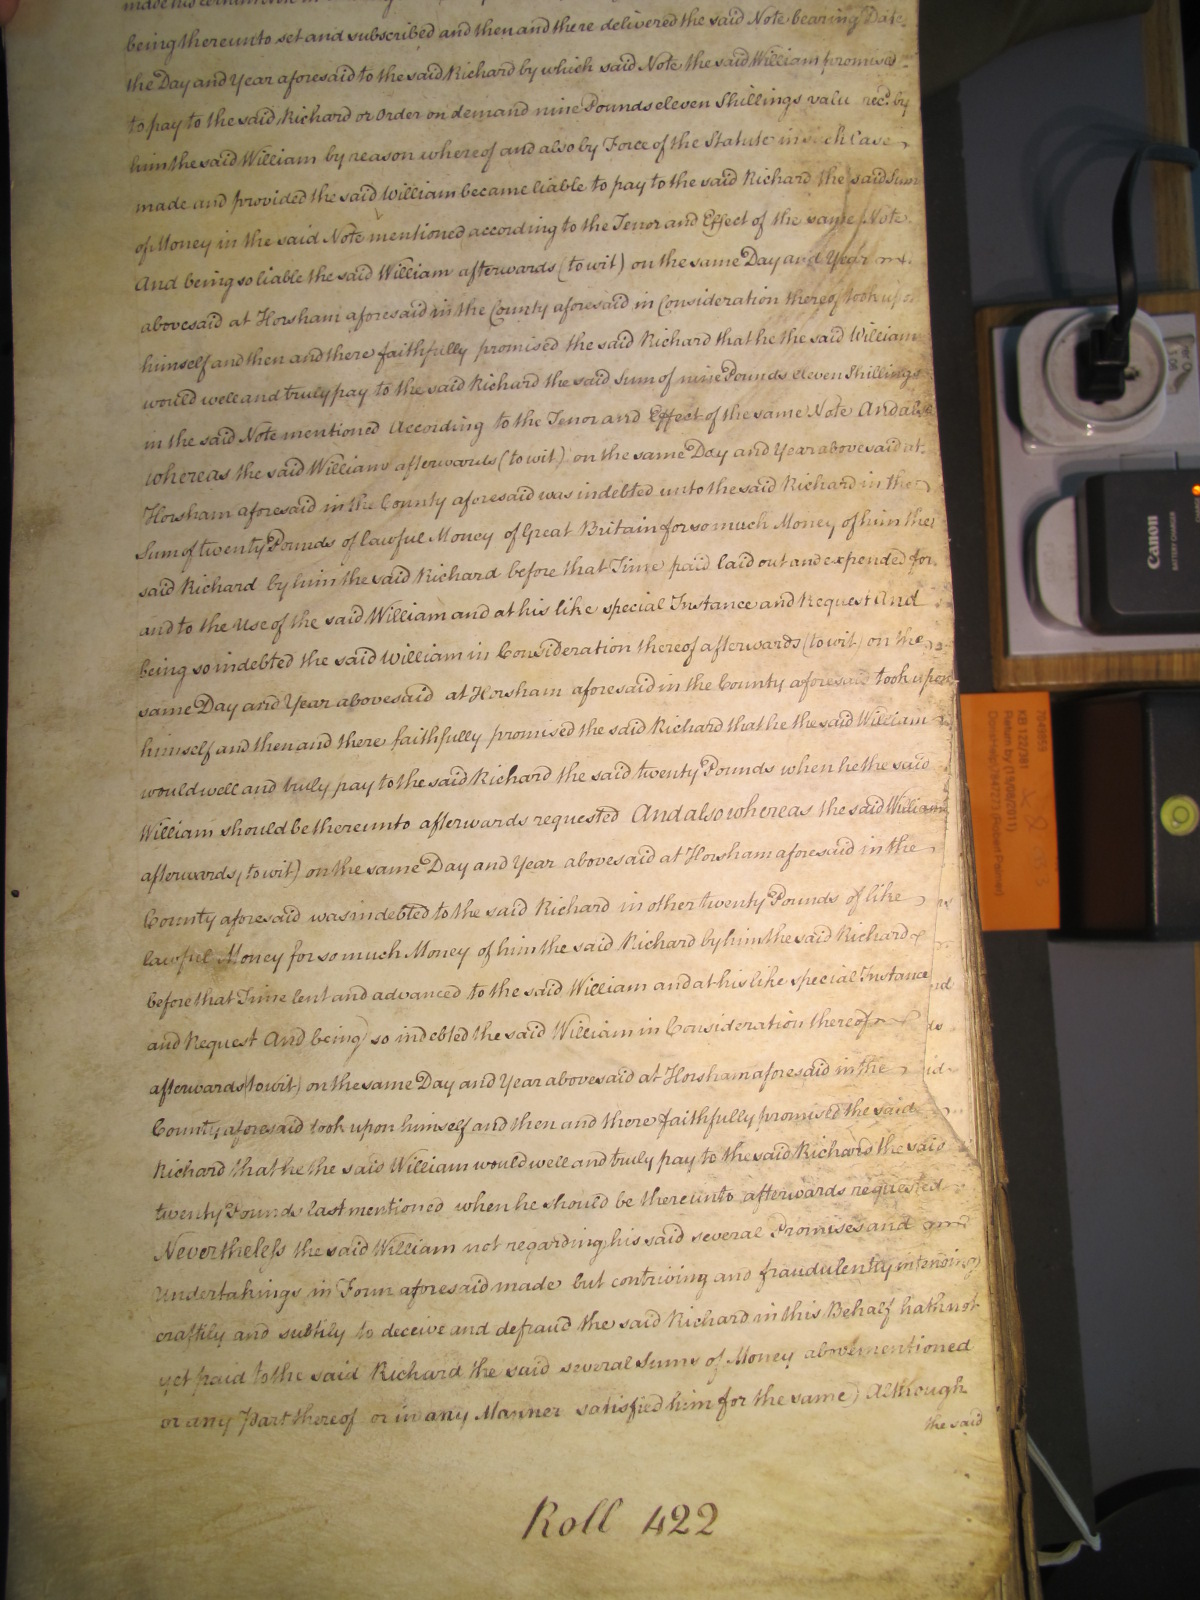 being thereunto set and subscribed and then and there delivered the said Note bearing Date
the Day and Year aforesaid to the said Richard by which said Note the said William promised
to pay to the said Richard or Order on demand nine Pounds eleven Shillings valu rec.d by
him the said William by reason whereof and also by Force of the Statute in such Case
made and provided the said William became liable to pay to the said Richard the said Sum
of Money in the said Note mentioned according to the Tenor and Effect of the same Note
And being so liable the said William afterwards (to wit) on the same Day and Year
abovesaid at Horsham aforesaid in the County aforesaid in Consideration thereof took upon
himself and then and there faithfully promised the said Richard that he the said William
would well and truly pay to the said Richard the said Sum of nine Pounds eleven Shillings
in the said Note mentioned According to the Tenor and Effect of the same Note And also
whereas the said William afterwards (to wit) on the same Day and Year abovesaid at
Horsham aforesaid in the County aforesaid was indebted unto the said Richard in the
Sum of twenty Pounds of lawful Money of Great Britain for so much Money of him the
said Richard by him the said Richard before that Time paid laid out and expended for
and to the Use of the said William and at his like special Instance and Request And
being so indebted the said William in Consideration thereof afterwards (to wit) on the
same Day and Year abovesaid at Horsham aforesaid in the County aforesaid took upon
himself and then and there faithfully promised the said Richard that he the said William
would well and truly pay to the said Richard the said twenty Pounds when he the said
William should be thereunto afterwards requested And also whereas the said William
afterwards (to wit) on the same Day and Year abovesaid at Horsham aforesaid in the
County aforesaid was indebted to the said Richard in other twenty Pounds of like
lawful Money for so much Money of him the said Richard by him the said Richard
before that Time lent and advanced to the said William and at his like special Instance
and Request And being so indebted the said William in Consideration thereof
afterwards (to wit) on the same Day and Year abovesaid at Horsham aforesaid in the
County aforesaid took upon himself and then and there faithfully promised the said
Richard that he the said William would well and truly pay to the said Richard the said
twenty Pounds last mentioned when he should be thereunto afterwards requested
Nevertheless the said William not regarding his said several Promises and
Undertakings in Form aforesaid made but contriving and fraudulently intending
craftily and subtily to deceive and defraud the said Richard in this Behalf hath not
yet paid to the said Richard the said several Sums of Money abovementioned
or any Part thereof or in any Manner satisfied him for the same) Although
the said
Roll 422
Canon
BATTERY CHARGER
KB 122/381